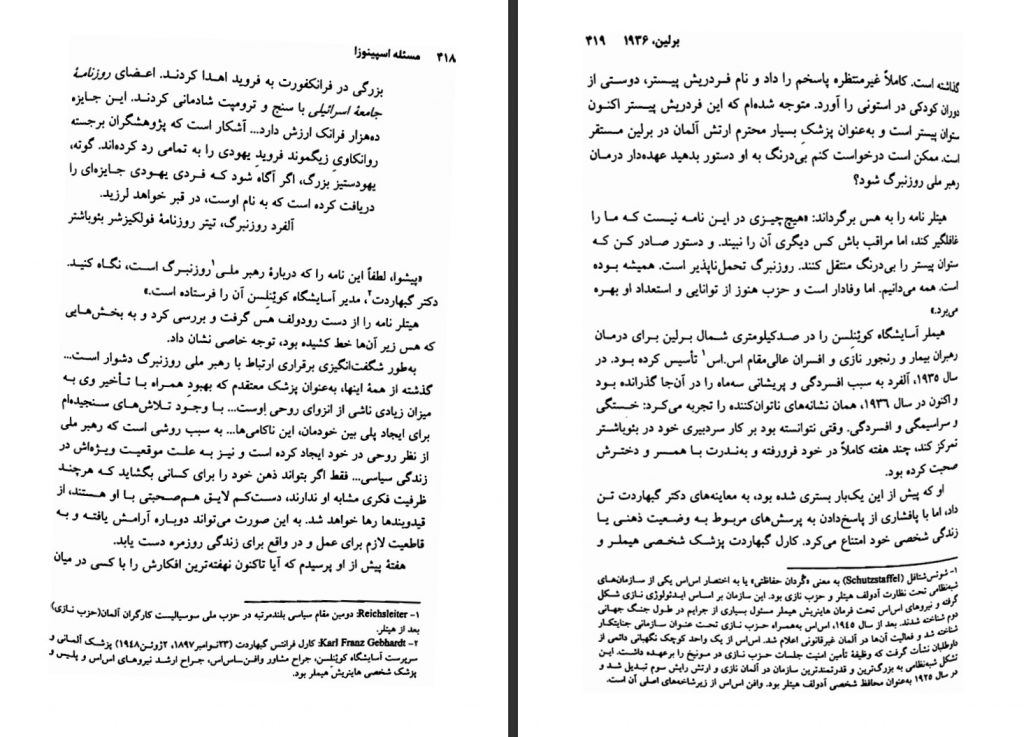 ۴۱۸ مسئله اسپینوزا
بزرگی در فرانکفورت به فروید اهدا کردند. اعضای روزنامهٔ
جامعهٔ اسرائیلی با سنج و ترومپت شادمانی کردند. این جایزه
ده‌هزار فرانک ارزش دارد... آشکار است که پژوهشگران برجسته
روانکاویِ زیگموند فرویدِ یهودی را به تمامی رد کرده‌اند. گوته،
یهودستیز بزرگ، اگر آگاه شود که فردی یهودی جایزه‌ای را
دریافت کرده است که به نام اوست، در قبر خواهد لرزید.
آلفرد روزنبرگ، تیتر روزنامهٔ فولکیزشر بئوباشتر
«پیشوا، لطفاً این نامه را که دربارهٔ رهبر ملی۱ روزنبرگ است، نگاه کنید.
دکتر گبهاردت۲، مدیر آسایشگاه کوئِنلِسن آن را فرستاده است.»
هیتلر نامه را از دست رودولف هس گرفت و بررسی کرد و به بخش‌هایی
که هس زیر آن‌ها خط کشیده بود، توجه خاصی نشان داد.
به‌طور شگفت‌انگیزی برقراری ارتباط با رهبر ملی روزنبرگ دشوار است...
گذشته از همهٔ اینها، به‌عنوان پزشک معتقدم که بهبودِ همراه با تأخیر وی به
میزان زیادی ناشی از انزوای روحی اوست... با وجود تلاش‌های سنجیده‌ام
برای ایجاد پلی بین خودمان، این ناکامی‌ها... به سبب روشی است که رهبر ملی
از نظر روحی در خود ایجاد کرده است و نیز به علت موقعیت ویژه‌اش در
زندگی سیاسی... فقط اگر بتواند ذهن خود را برای کسانی بگشاید که هرچند
ظرفیت فکری مشابه او ندارند، دست‌کم لایق هم‌صحبتی با او هستند، از
قیدوبندها رها خواهد شد. به این صورت می‌تواند دوباره آرامش یافته و به
قاطعیت لازم برای عمل و در واقع برای زندگی روزمره دست یابد.
هفتهٔ پیش از او پرسیدم که آیا تاکنون نهفته‌ترین افکارش را با کسی در میان
۱- Reichsleiter: دومین مقام سیاسی بلندمرتبه در حزب ملی سوسیالیست کارگران آلمان(حزب نازی)
بعد از هیتلر.
۲- Karl Franz Gebhardt: کارل فرانتس گبهاردت (۲۳نوامبر۱۸۹۷، ۲ژوئن۱۹۴۸) پزشک آلمانی و
سرپرست آسایشگاه کوئِنلِسن، جراح مشاور وافن‌ـ‌اس‌اس، جراح ارشد نیروهای اس‌اس و پلیس و
پزشک شخصی هاینریش هیملر بود.
برلین، ۱۹۳۶ ۴۱۹
گذاشته است. کاملاً غیرمنتظره پاسخم را داد و نام فردریش پیستر، دوستی از
دوران کودکی در استونی را آورد. متوجه شده‌ام که این فردریش پیستر اکنون
ستوان پیستر است و به‌عنوان پزشکِ بسیار محترم ارتش آلمان در برلین مستقر
است. ممکن است درخواست کنم بی‌درنگ به او دستور بدهید عهده‌دار درمان
رهبر ملی روزنبرگ شود؟
هیتلر نامه را به هس برگرداند: «هیچ‌چیزی در این نامه نیست که ما را
غافلگیر کند، اما مراقب باش کس دیگری آن را نبیند. و دستور صادر کن که
ستوان پیستر را بی‌درنگ منتقل کنند. روزنبرگ تحمل‌ناپذیر است. همیشه بوده
است. همه می‌دانیم. اما وفادار است و حزب هنوز از توانایی و استعداد او بهره
می‌برد.»
هیملر آسایشگاه کوئِنلِسن را در صدکیلومتری شمال برلین برای درمان
رهبران بیمار و رنجور نازی و افسران عالی‌مقام اس.اس۱ تأسیس کرده بود. در
سال ۱۹۳۵، آلفرد به سبب افسردگی و پریشانی سه‌ماه را در آن‌جا گذرانده بود
و اکنون در سال ۱۹۳۶، همان نشانه‌های ناتوان‌کننده را تجربه می‌کرد: خستگی
و سراسیمگی و افسردگی. وقتی نتوانسته بود بر کار سردبیری خود در بئوباشتر
تمرکز کند، چند هفته کاملاً در خود فرورفته و به‌ندرت با همسر و دخترش
صحبت کرده بود.
او که پیش از این یک‌بار بستری شده بود، به معاینه‌های دکتر گبهاردت تن
داد، اما با پافشاری از پاسخ‌دادن به پرسش‌های مربوط به وضعیت ذهنی یا
زندگی شخصی خود امتناع می‌کرد. کارل گبهاردت پزشک شخصی هیملر و
۱- شوتس‌شتافل (Schutzstaffel) به معنی «گُردان حفاظتی» یا به اختصار اس‌اس یکی از سازمان‌های
شبه‌نظامی تحت نظارت آدولف هیتلر و حزب نازی بود. این سازمان بر اساس ایدئولوژی نازی شکل
گرفته و نیروهای اس‌اس تحت فرمان هاینریش هیملر مسئول بسیاری از جرایم در طول جنگ جهانی
دوم شناخته شدند. بعد از سال ۱۹۴۵، اس‌اس به‌همراه حزب نازی تحت عنوان سازمانی جنایتکار
شناخته شد و فعالیت آن‌ها در آلمان غیرقانونی اعلام شد. اس‌اس از یک واحد کوچک نگهبانی دائمی از
داوطلبان نشأت گرفت که وظیفهٔ تأمین امنیت جلسات حزب نازی در مونیخ را برعهده داشت. این
تشکل شبه‌نظامی به بزرگ‌ترین و قدرتمندترین سازمان در آلمان نازی و ارتش رایش سوم تبدیل شد و
در سال ۱۹۲۵ به‌عنوان محافظ شخصی آدولف هیتلر بود. وافن اس‌اس از زیرشاخه‌های اصلی آن است.